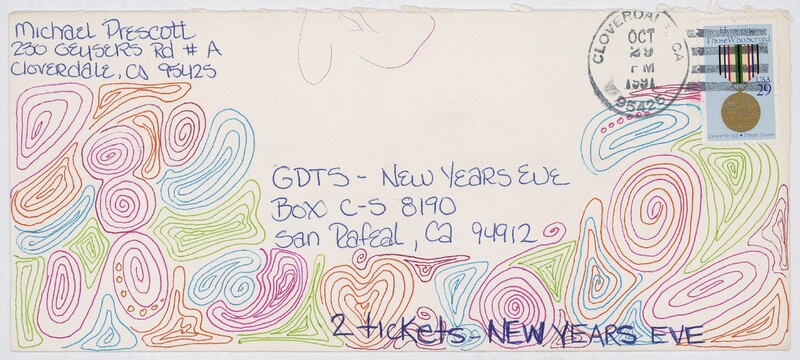 Michael Prescott
230 Geysers Rd # A
Cloverdale, CA 95425
CLOVERDALE CA
OCT
29
PM
1991
95425
Honoring
Those Who Served
USA
29
Desert Shield • Desert Storm
GDTS - New Years Eve
Box C-S 8190
San Rafeal, Ca 94912
2 tickets - New Years Eve